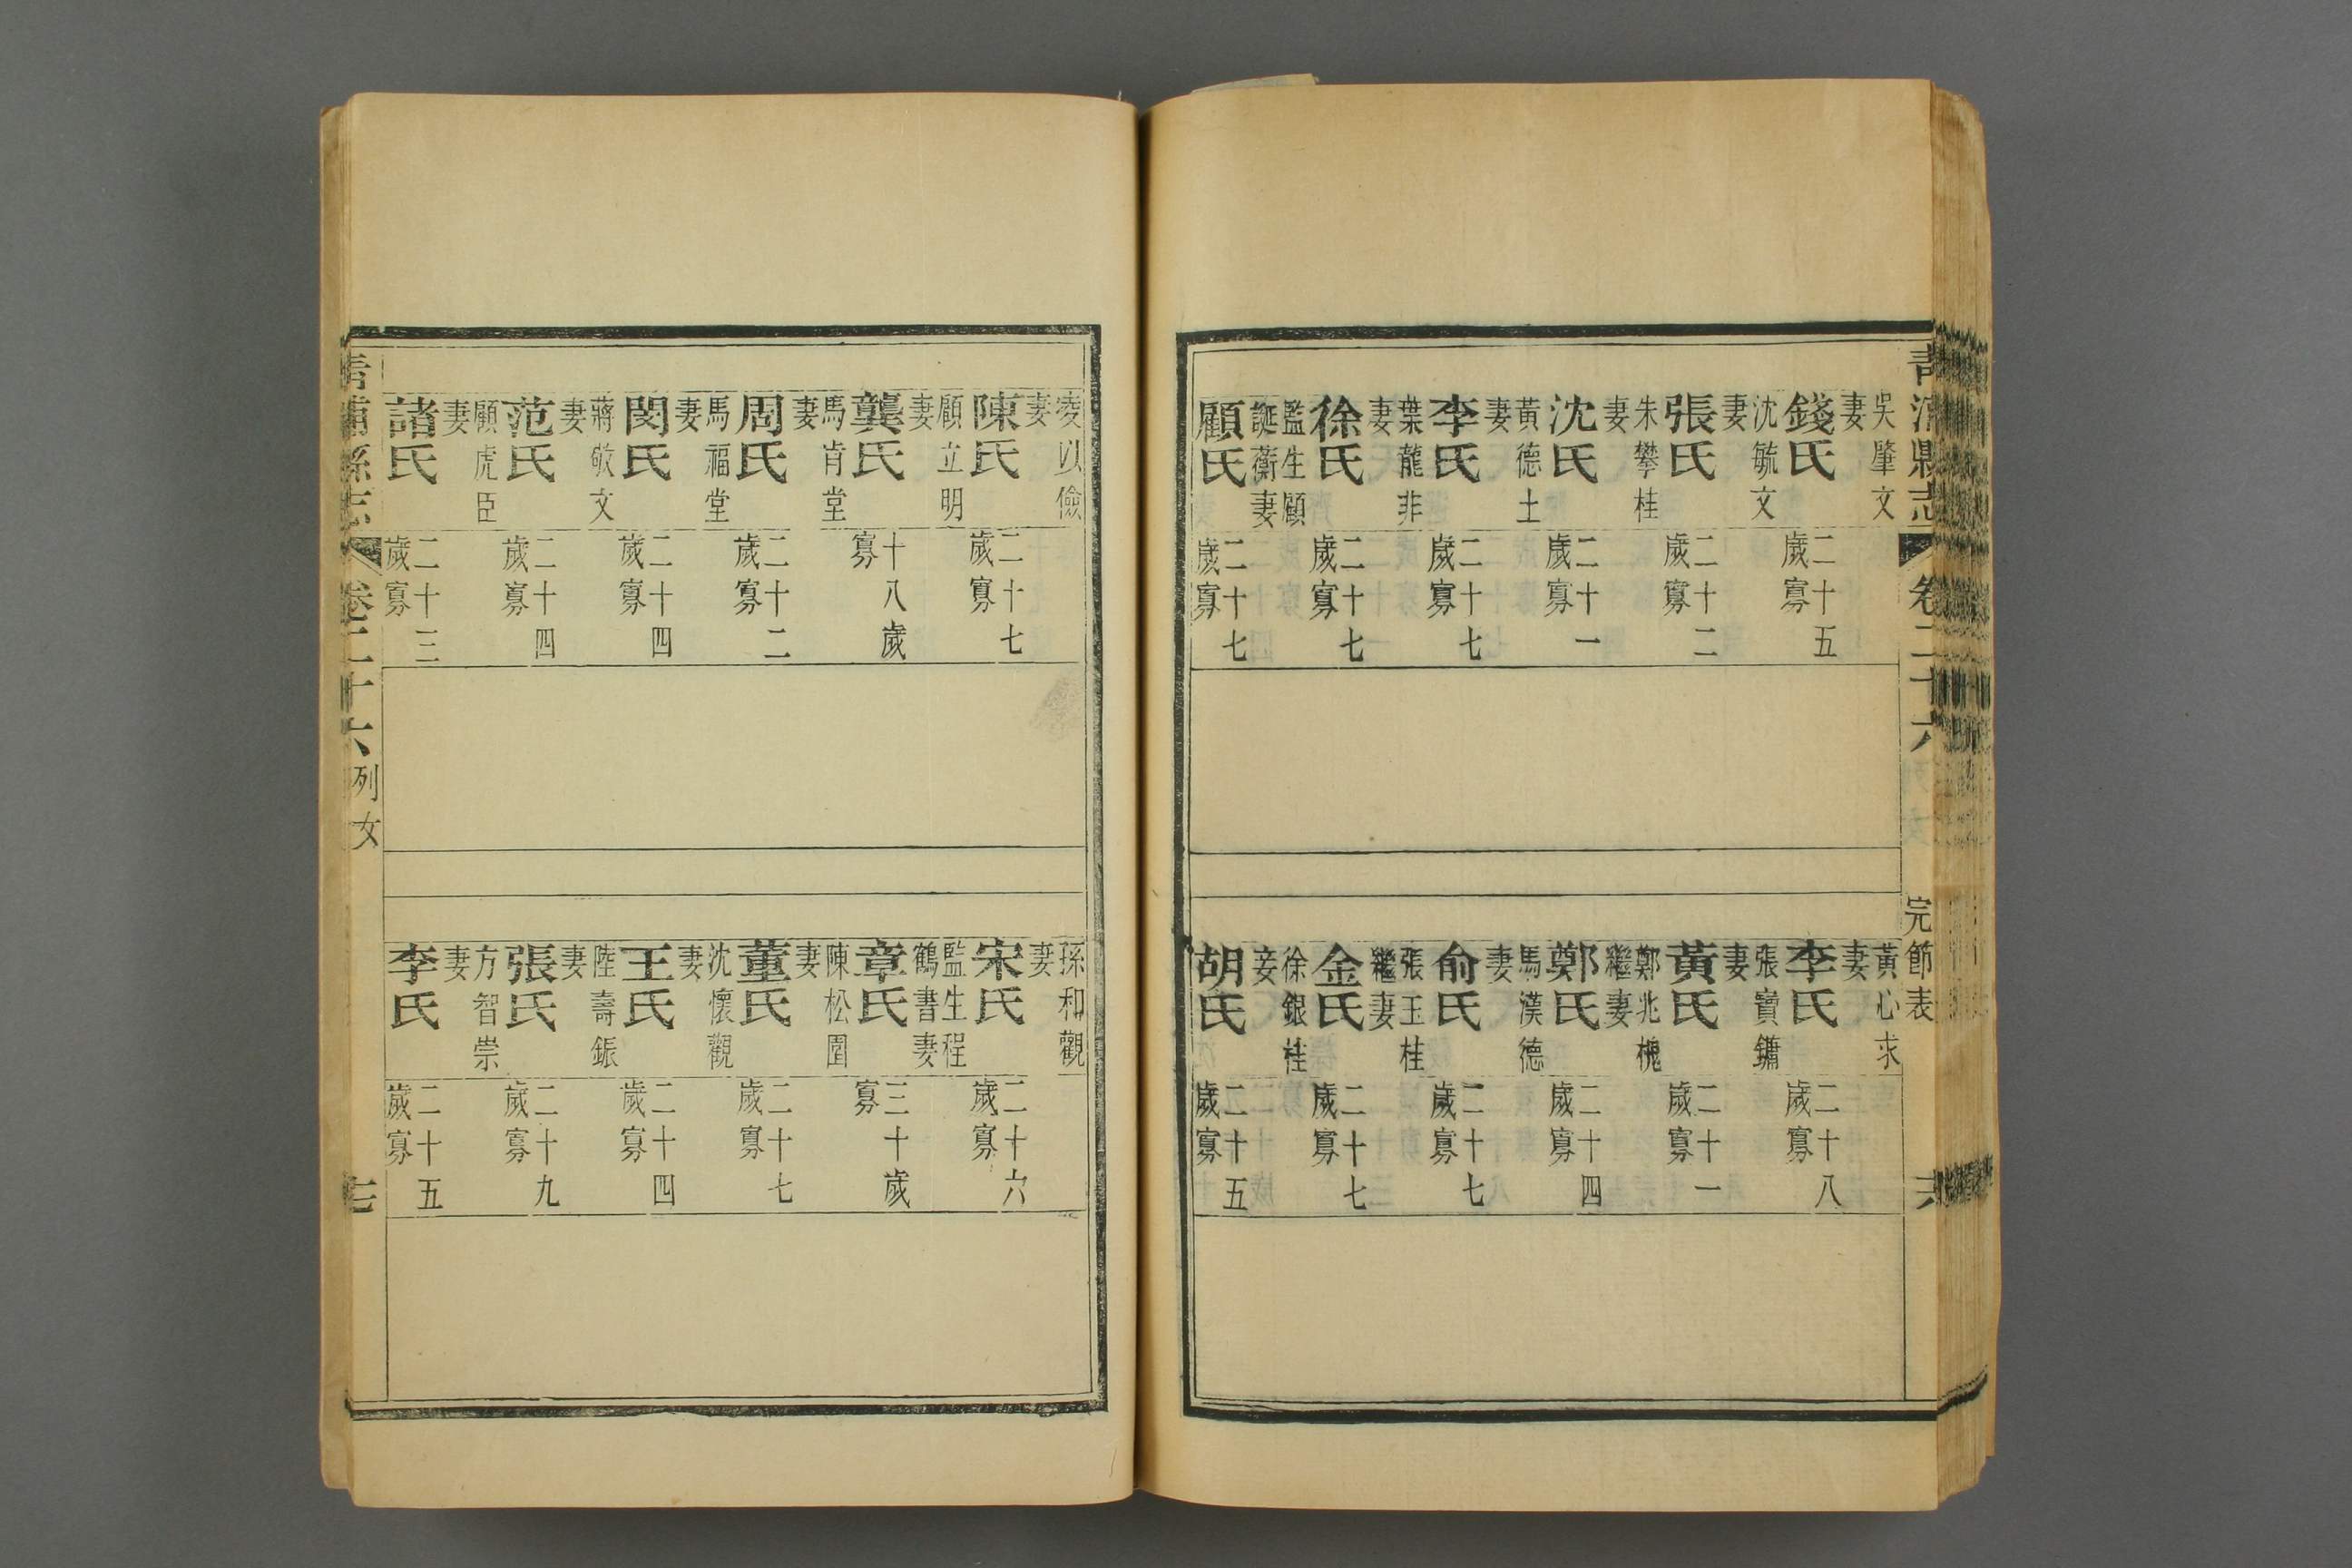 青浦縣志
卷二十六
完節表
吳肇文妻
錢氏
二十五歲寡
沈毓文妻
張氏
二十二歲寡
朱攀桂妻
沈氏
二十一歲寡
黃德士妻
李氏
二十七歲寡
葉龍非妻
徐氏
二十七歲寡
監生顧誕蘅妻
顧氏
二十七歲寡
黃心求妻
李氏
二十八歲寡
張寶鏞妻
黃氏
二十一歲寡
鄭兆槐繼妻
鄭氏
二十四歲寡
馬漢德妻
俞氏
二十七歲寡
張玉桂繼妻
金氏
二十七歲寡
徐銀桂妾
胡氏
二十五歲寡
凌以儉妻
陳氏
二十七歲寡
顧立明妻
龔氏
十八歲寡
馬肯堂妻
周氏
二十二歲寡
馬福堂妻
閔氏
二十四歲寡
蔣敬文妻
范氏
二十四歲寡
顧虎臣妻
諸氏
二十三歲寡
孫和觀妻
宋氏
二十六歲寡
監生程鶴書妻
章氏
三十歲寡
陳松園妻
董氏
二十七歲寡
沈懷觀妻
王氏
二十四歲寡
陸壽鋠妻
張氏
二十九歲寡
方智崇妻
李氏
二十五歲寡
青浦縣志
卷二十六
列女